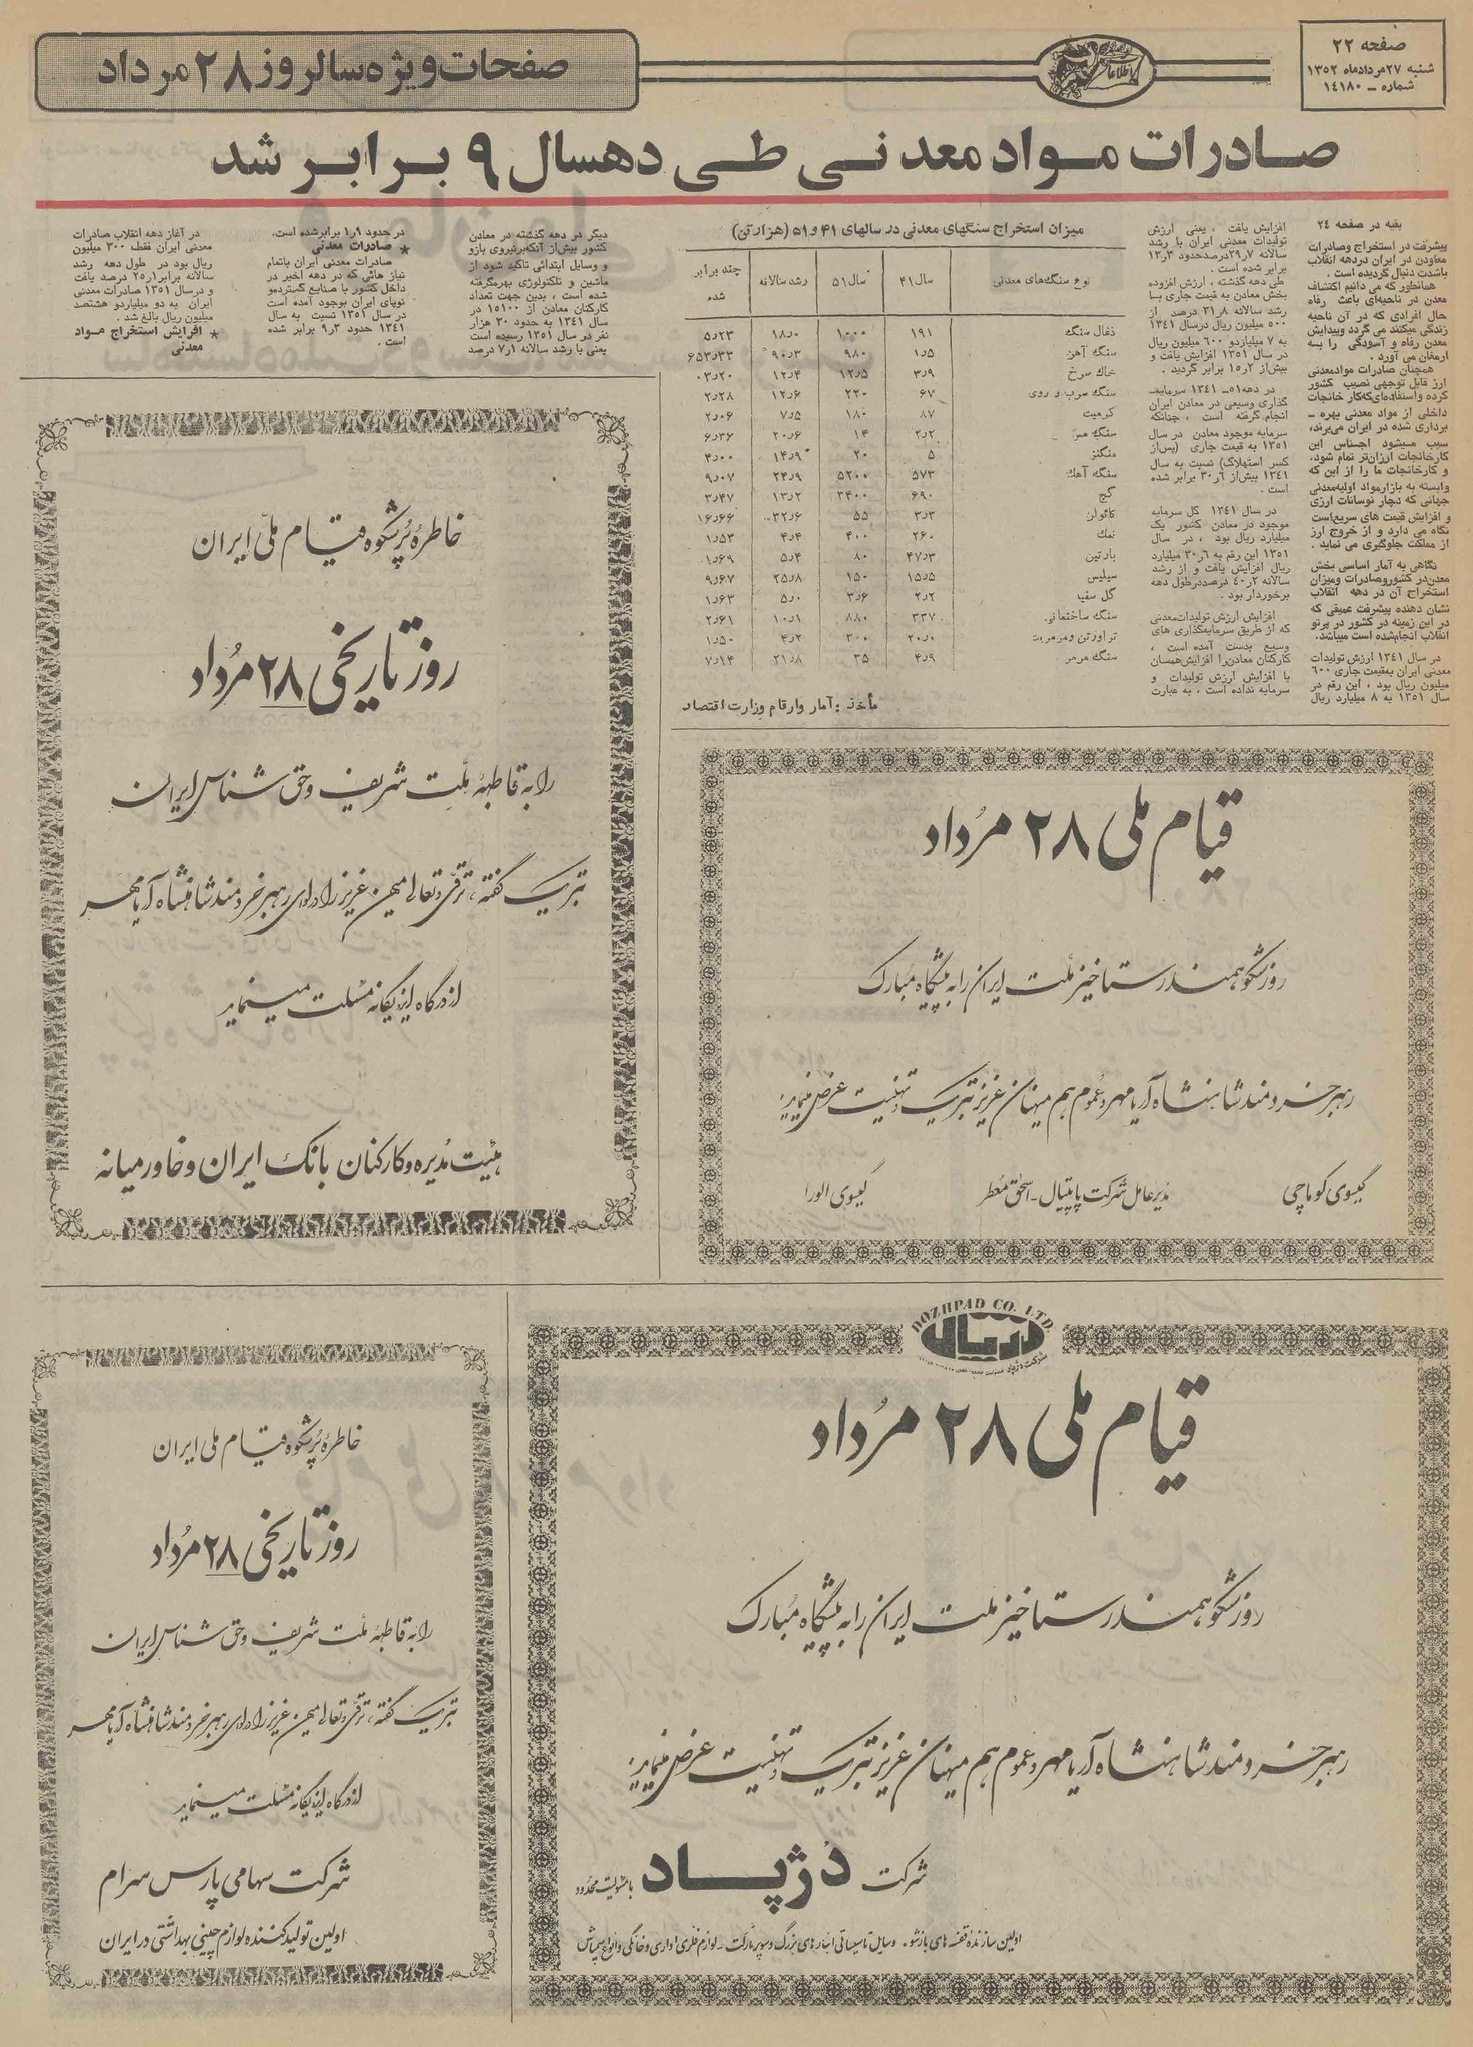 صفحه ۲۲
شنبه ۲۷ مردادماه ۱۳۵۲
شماره – ۱۴۱۸۰
اطلاعات
صفحات ویژه سالروز ۲۸ مرداد
صادرات مواد معدنی طی دهسال ۹ برابر شد
بقیه در صفحه ۲۴
پیشرفت در استخراج وصادرات
معاودن در ایران دردهه انقلاب
باشدت دنبال گردیده است .
همانطور که می دانیم اکتشاف
معدن در ناحیه‌ای باعث رفاه
حال افرادی که در آن ناحیه
زندگی میکنند می گردد وپیدایش
معدن رفاه و آسودگی را بسه
ارمغان می آورد .
همچنان صادرات موادمعدنی
ارز قابل توجهی نصیب کشور
کرده واستفاده‌ای‌که‌کار خانجات
داخلی از مواد معدنی بهره –
برداری شده در ایران می‌برند،
سبب میشود اجناس این
کارخانجات ارزان‌تر تمام شود،
و کارخانجات ما را از این که
وابسته به بازارمواد اولیه‌معدنی
جهانی که دچار نوسانات ارزی
و افزایش قیمت های سریع‌است
نگاه می دارد و از خروج ارز
از مملکت جلوگیری می نماید .
نگاهی به آمار اساسی بخش
معدن‌در کشوروصادرات ومیزان
استخراج آن در دهه انقلاب
نشان دهنده پیشرفت عمیقی که
در این زمینه در کشور در پرتو
انقلاب انجام‌شده است میباشد.
در سال ۱۳۴۱ ارزش تولیدات
معدنی ایران به‌قیمت جاری ۶۰۰
میلیون ریال بود ، این رقم در
سال ۱۳۵۱ به ۸ میلیارد ریال
افزایش یافت ، یعنی ارزش
تولیدات معدنی ایران با رشد
سالانه ۲۹٫۷درصدحدود ۱۳٫۳
برابر شده است .
طی دهه گذشته ، ارزش افزوده
بخش معادن به قیمت جاری بسا
رشد سالانه ۳۱٫۸ درصد از
۵۰۰ میلیون ریال درسال ۱۳۴۱
به ۷ میلیاردو ۶۰۰ میلیون ریال
در سال ۱۳۵۱ افزایش یافت و
بیش‌از ۱۵٫۲ برابر گردید .
در دهه‌۵۱ – ۱۳۴۱ سرمایه‌–
گذاری وسیعی در معادن ایران
انجام گرفته است ، چنانکه
سرمایه موجود معادن در سال
۱۳۵۱ به قیمت جاری (پس‌از
کسر استهلاک) نسبت به سال
۱۳۴۱ بیش‌از ۳۰٫۶ برابر شده
است .
در سال ۱۳۴۱ کل سرمایه
موجود در معادن کشور یک
میلیارد ریال بود ، در سال
۱۳۵۱ این رقم به ۳۰٫۶ میلیارد
ریال افزایش یافت و از رشد
سالانه ۴۰٫۲ درصددرطول دهه
برخوردار بود .
افزایش ارزش تولیدات‌معدنی
که از طریق سرمایه‌گذاری های
وسیع بدست آمده است ،
کارکنان معادن‌را افزایش‌همسان
با افزایش ارزش تولیدات و
سرمایه نداده است ، به عبارت
میزان استخراج سنگهای معدنی در سالهای ۴۱ و ۵۱ (هزار تن)
نوع سنگ‌های معدنی سال ۴۱ سال ۵۱ رشد سالانه چند برابر شده
ذغال سنگ ۱۹۱ ۱۰۰۰ ۱۸٫۰ ۵٫۲۳
سنگ آهن ۱٫۵ ۹۸۰ ۹۰٫۳ ۶۵۳٫۳۳
خاک سرخ ۳٫۹ ۱۲٫۵ ۱۲٫۴ ۰۳٫۲۰
سنگ سرب و روی ۶۷ ۲۲۰ ۱۲٫۶ ۲٫۲۸
کرمیت ۸۷ ۱۸۰ ۷٫۵ ۲٫۰۶
سنگ مس ۲٫۲ ۱۴ ۲۰٫۶ ۶٫۳۶
منگنز ۵ ۲۰ ۱۴٫۹ ۴٫۰۰
سنگ آهک ۵۷۳ ۵۲۰۰ ۲۴٫۹ ۹٫۰۷
گچ ۶۹۰ ۲۴۰۰ ۱۳٫۲ ۳٫۴۷
کائولن ۳٫۳ ۵۵ ۳۲٫۶ ۱۶٫۶۶
نمک ۲۶۰ ۴۰۰ ۴٫۴ ۱٫۵۳
بارتین ۴۷٫۳ ۸۰ ۵٫۴ ۱٫۶۹
سیلیس ۱۵٫۵ ۱۵۰ ۲۵٫۸ ۹٫۶۷
گل سفید ۲٫۲ ۳٫۶ ۵٫۰ ۱٫۶۳
سنگ ساختمانی ۳۳۷ ۸۸۰ ۱۰٫۱ ۲٫۶۱
تراورتن ومرمریت ۲۰٫۰ ۳۰۰ ۴٫۲ ۱٫۵۰
سنگ مرمر ۴٫۹ ۳۵ ۲۱٫۸ ۷٫۱۴
مأخذ : آمار وارقام وزارت اقتصاد
دیگر در دهه گذشته در معادن
کشور بیش‌از آنکه‌برنیروی بازو
و وسایل ابتدائی تاکید شود از
ماشین و تکنولوژی بهره‌گرفته
شده است ، بدین جهت تعداد
کارکنان معادن از ۱۵۱۰۰ در
سال ۱۳۴۱ به حدود ۳۰ هزار
نفر در سال ۱۳۵۱ رسیده است
یعنی با رشد سالانه ۷٫۱ درصد
در حدود ۱٫۹ برابرشده است.
★ صادرات معدنی
صادرات معدنی ایران باتمام
نیاز هائی که در دهه اخیر در
داخل کشور با صنایع گسترده‌و
نوپای ایران بوجود آمده است
در سال ۱۳۵۱ نسبت به سال
۱۳۴۱ حدود ۹٫۳ برابر شده
است .
در آغاز دهه انقلاب صادرات
معدنی ایران فقط ۳۰۰ میلیون
ریال بود در طول دهه رشد
سالانه برابر ۲۵٫۱ درصد یافت
و درسال ۱۳۵۱ صادرات معدنی
ایران به دو میلیاردو هشتصد
میلیون ریال بالغ شد .
★ افزایش استخراج مواد
معدنی
خاطرهٔ پرشکوه قیام ملی ایران
روز تاریخی ۲۸ مرداد
را به قاطبهٔ ملت شریف و حق شناس ایران
تبریک گفته ، ترقی و تعالی میهن عزیز را در لوای رهبر خردمند شاهنشاه آریامهر
از درگاه ایزدیگانه مسئلت مینماید
هیئت مدیره و کارکنان بانک ایران و خاورمیانه
قیام ملی ۲۸ مرداد
روز شکوهمند رستاخیز ملت ایران را به پیشگاه مبارک
رهبر خردمند شاهنشاه آریامهر و عموم هم میهنان عزیز تبریک و تهنیت عرض مینماید:
گیسوی کوماچی
مدیرعامل شرکت پاپیتال – اسحق معطر
گیسوی الورا
DOZHPAD CO. LTD
دژپاد
قیام ملی ۲۸ مرداد
روز شکوهمند رستاخیز ملت ایران را به پیشگاه مبارک
رهبر خردمند شاهنشاه آریامهر و عموم هم میهنان عزیز تبریک و تهنیت عرض مینماید:
شرکت دژپاد با مسئولیت محدود
اولین سازنده قفسه های بازشو . وسایل تاسیساتی انبارهای بزرگ و سوپرمارکت – لوازم فلزی اداری و خانگی و انواع سمپاش
خاطره پرشکوه قیام ملی ایران
روز تاریخی ۲۸ مرداد
را به قاطبهٔ ملت شریف و حق شناس ایران
تبریک گفته ، ترقی و تعالی میهن عزیز را در لوای رهبر خردمند شاهنشاه آریامهر
از درگاه ایزدیگانه مسئلت مینماید
شرکت سهامی پارس سرام
اولین تولید کننده لوازم چینی بهداشتی در ایران